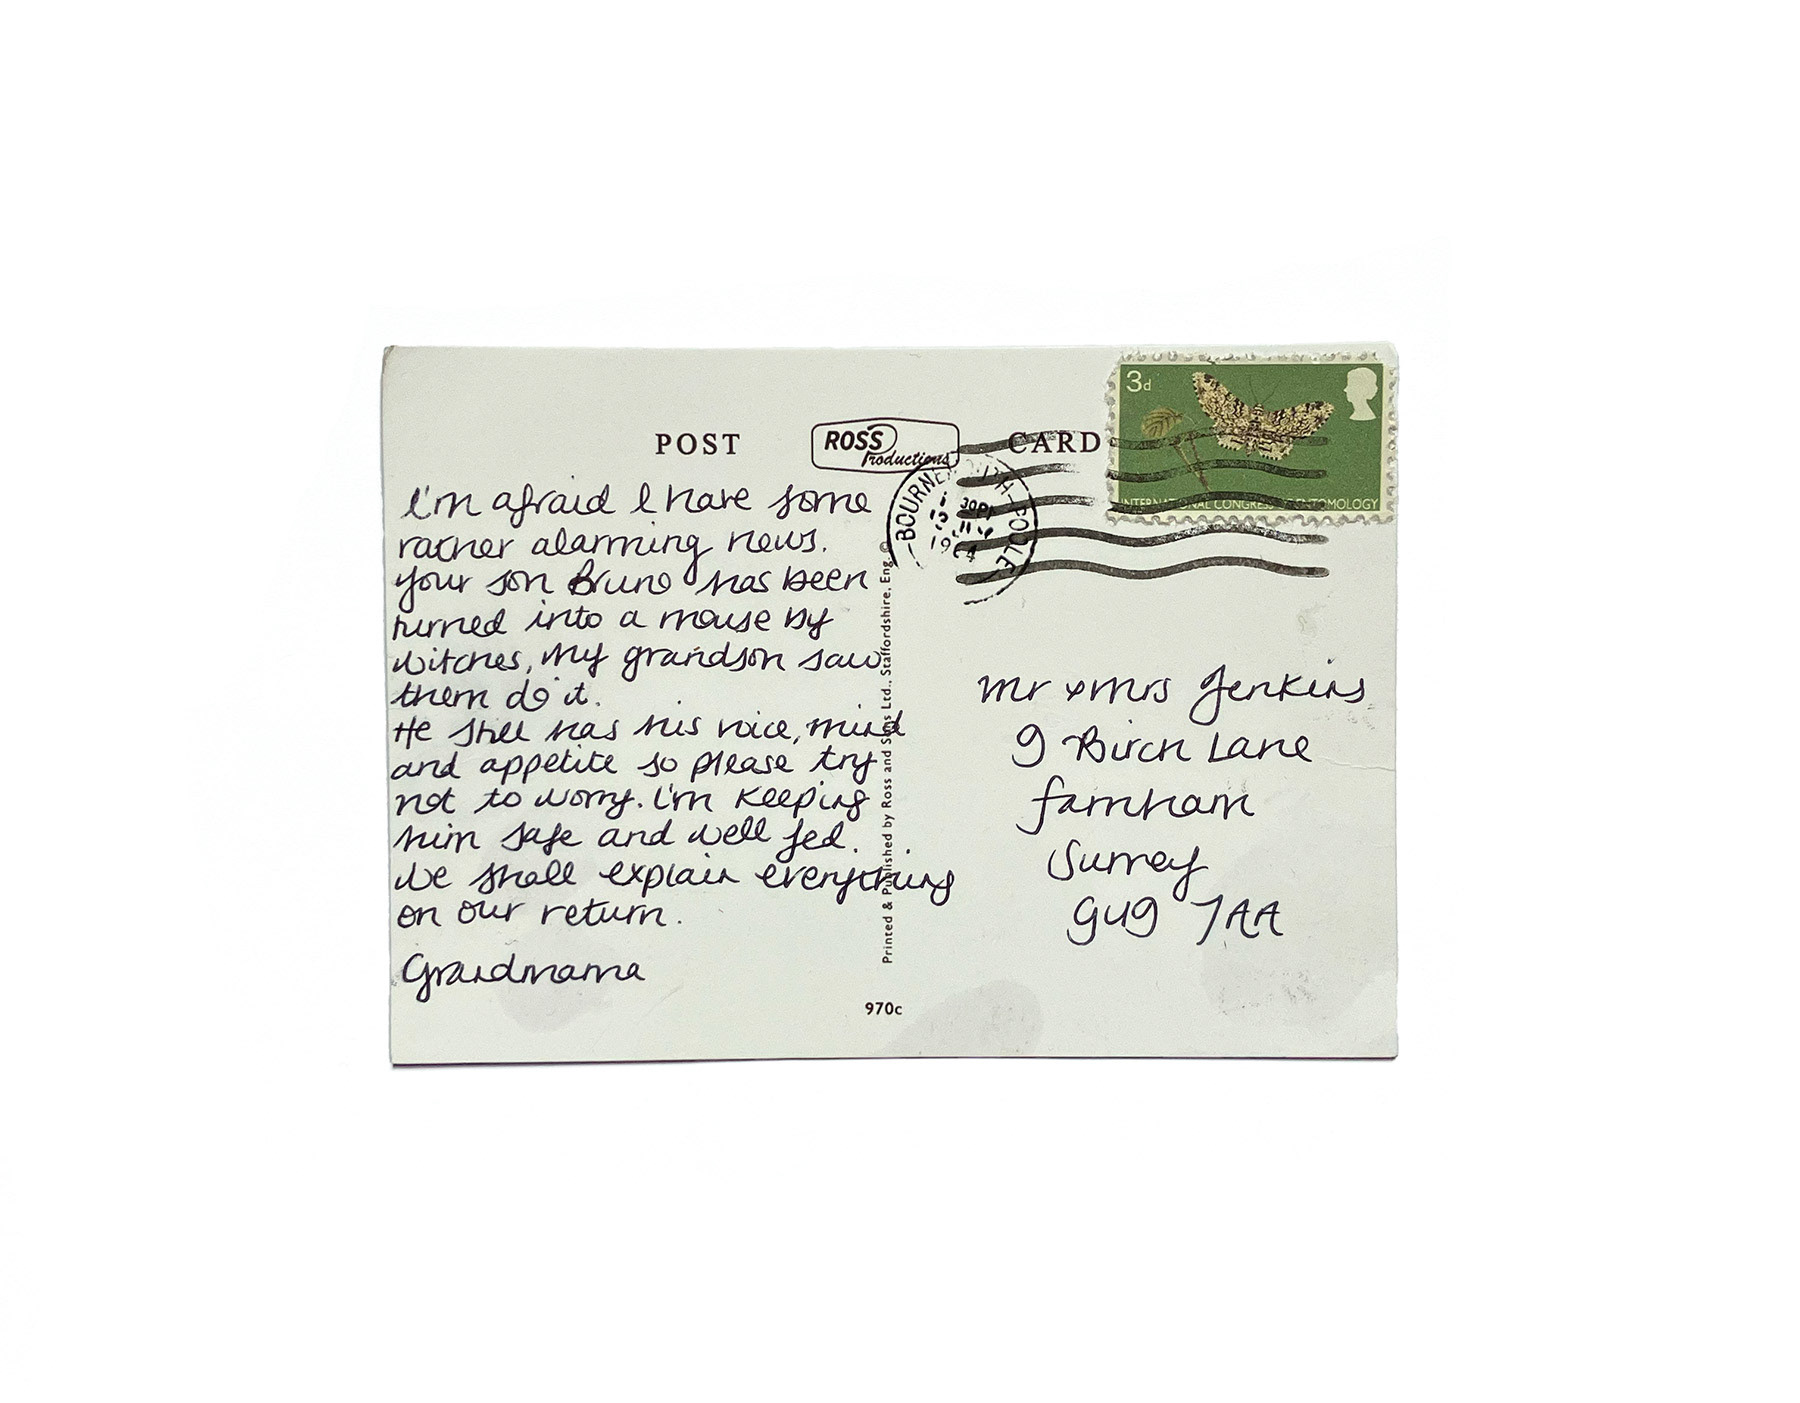 POST ROSS Productions CARD
3d
INTERNATIONAL CONGRESS ENTOMOLOGY
BOURNEMOUTH-POOLE
1964
I'm afraid I have some
rather alarming news.
Your son Bruno has been
turned into a mouse by
witches, my grandson saw
them do it.
He still has his voice, mind
and appetite so please try
not to worry. I'm keeping
him safe and well fed.
We shall explain everything
on our return.
Grandmama
Printed & Published by Ross and Sons Ltd., Staffordshire, Eng. ©
970c
Mr & Mrs Jenkins
9 Birch Lane
Farnham
Surrey
GU9 7AA